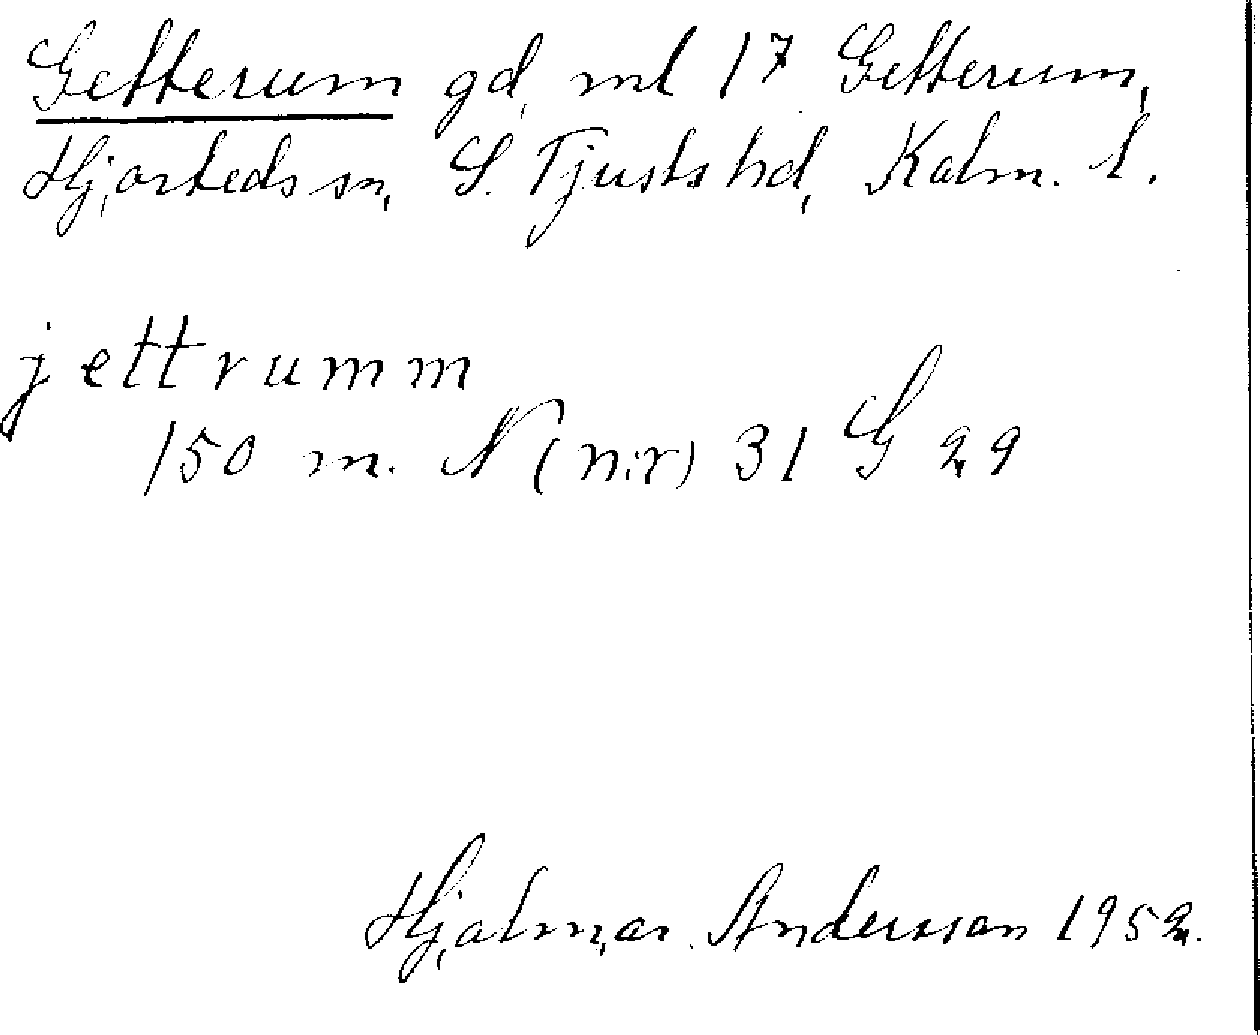 Getterum gd, ml 17 Getterum,
Hjorteds sn, S. Tjusts hd, Kalm. l.
jettrumm
150 m. N (n:r) 31 G 29
Hjalmar Andersson 1952.